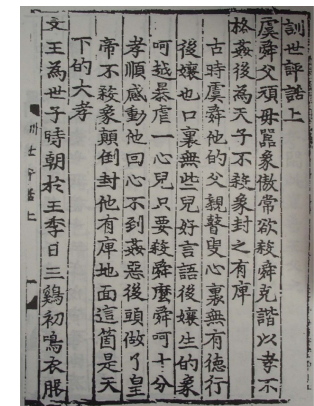 訓世評話上
虞舜父頑母嚚象傲常欲殺舜克諧以孝不
格姦後為天子不殺象封之有庳
古時虞舜他的父親瞽叟心裏無有德行
後孃也口裏無些兒好言語後孃生的象
呵越暴虐一心兒只要殺舜麽舜呵十分
孝順感動他回心不到姦惡後頭做了皇
帝不殺象顛倒封他有庳地面這箇是天
下的大孝
文王為世子時朝於王季日三鷄初鳴衣服